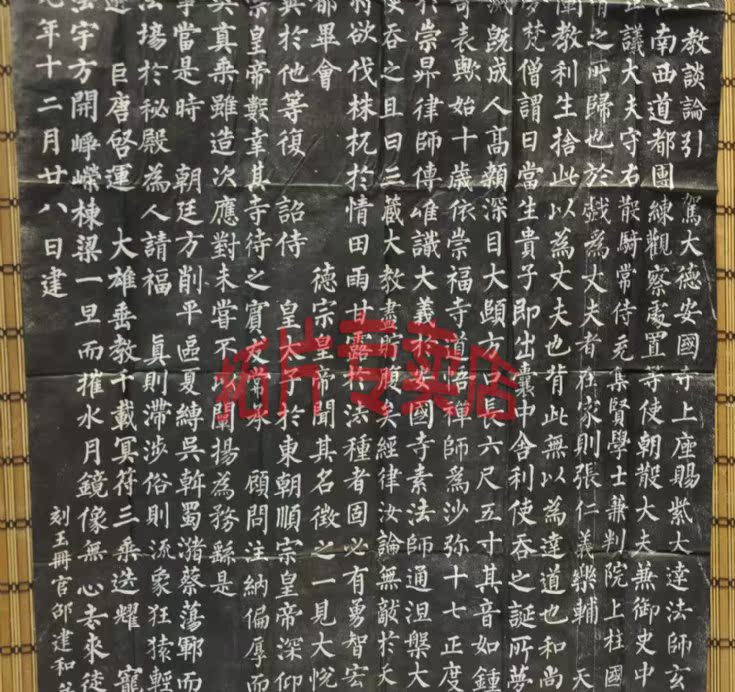 教談論引　駕大德安國寺上座賜紫大達法師玄
南西道都團練觀察處置等使朝散大夫兼御史中
議大夫守右散騎常侍充集賢學士兼判院上柱國
之所歸也於戲為丈夫者在家則張仁義樂輔　天
教利生捨此以為丈夫也背此無以為達道也和尚
梵僧謂曰當生貴子即出囊中舍利使吞之誕所夢
既成人高顙深目大頤方口長六尺五寸其音如鍾
奇表歟始十歲依崇福寺道悟禪師為沙弥十七正度
於崇昇律師傳唯識大義於安國寺素法師通涅槃大
吞之且曰三藏大教盡貯腹矣經律汝論無敵於天
將欲伐株杌於情田雨甘露於法種者固必有勇智宏
都畢會　德宗皇帝聞其名徵之一見大悅
與於他等復　詔侍　皇太子於東朝順宗皇帝深仰
宗皇帝數幸其寺待之賓友常承　顧問注納偏厚而
與真乘雖造次應對未嘗不以闡揚為務繇是
事當是時　朝廷方削平區夏縛吳斡蜀瀦蔡蕩鄆而
法場於秘殿為人請福　真則滯涉俗則流象狂猿輕
巨唐啓運　大雄垂教千載冥符三乘迭耀　寵
宇方開崢嶸棟梁一旦而摧水月鏡像無心去來徒
元年十二月廿八日建
刻玉冊官邵建和
拓片专卖店